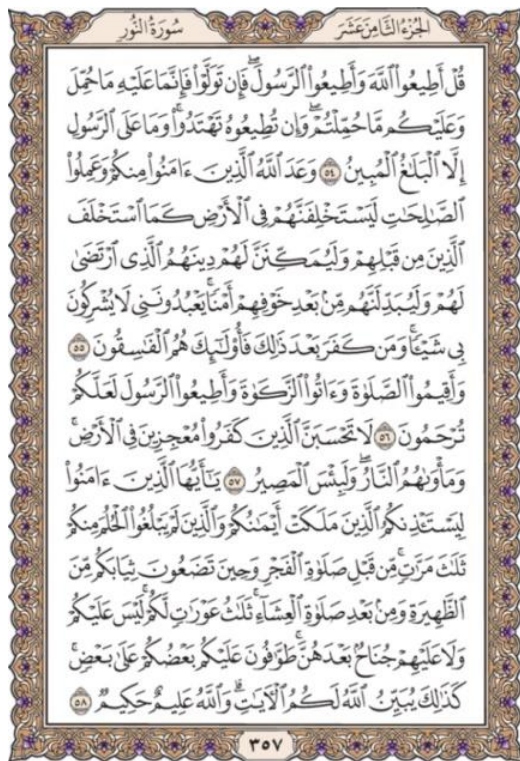 الجُزْءُ الثَّامِنَ عَشَرَ
سُورَةُ النُّورِ
قُلْ أَطِيعُوا۟ ٱللَّهَ وَأَطِيعُوا۟ ٱلرَّسُولَ ۖ فَإِن تَوَلَّوْا۟ فَإِنَّمَا عَلَيْهِ مَا حُمِّلَ
وَعَلَيْكُم مَّا حُمِّلْتُمْ ۖ وَإِن تُطِيعُوهُ تَهْتَدُوا۟ ۚ وَمَا عَلَى ٱلرَّسُولِ
إِلَّا ٱلْبَلَٰغُ ٱلْمُبِينُ ٥٤ وَعَدَ ٱللَّهُ ٱلَّذِينَ ءَامَنُوا۟ مِنكُمْ وَعَمِلُوا۟
ٱلصَّٰلِحَٰتِ لَيَسْتَخْلِفَنَّهُمْ فِى ٱلْأَرْضِ كَمَا ٱسْتَخْلَفَ
ٱلَّذِينَ مِن قَبْلِهِمْ وَلَيُمَكِّنَنَّ لَهُمْ دِينَهُمُ ٱلَّذِى ٱرْتَضَىٰ
لَهُمْ وَلَيُبَدِّلَنَّهُم مِّنۢ بَعْدِ خَوْفِهِمْ أَمْنًا ۚ يَعْبُدُونَنِى لَا يُشْرِكُونَ
بِى شَيْـًٔا ۚ وَمَن كَفَرَ بَعْدَ ذَٰلِكَ فَأُو۟لَٰٓئِكَ هُمُ ٱلْفَٰسِقُونَ ٥٥
وَأَقِيمُوا۟ ٱلصَّلَوٰةَ وَءَاتُوا۟ ٱلزَّكَوٰةَ وَأَطِيعُوا۟ ٱلرَّسُولَ لَعَلَّكُمْ
تُرْحَمُونَ ٥٦ لَا تَحْسَبَنَّ ٱلَّذِينَ كَفَرُوا۟ مُعْجِزِينَ فِى ٱلْأَرْضِ ۚ
وَمَأْوَىٰهُمُ ٱلنَّارُ ۖ وَلَبِئْسَ ٱلْمَصِيرُ ٥٧ يَٰٓأَيُّهَا ٱلَّذِينَ ءَامَنُوا۟
لِيَسْتَـْٔذِنكُمُ ٱلَّذِينَ مَلَكَتْ أَيْمَٰنُكُمْ وَٱلَّذِينَ لَمْ يَبْلُغُوا۟ ٱلْحُلُمَ مِنكُمْ
ثَلَٰثَ مَرَّٰتٍ ۚ مِّن قَبْلِ صَلَوٰةِ ٱلْفَجْرِ وَحِينَ تَضَعُونَ ثِيَابَكُم مِّنَ
ٱلظَّهِيرَةِ وَمِنۢ بَعْدِ صَلَوٰةِ ٱلْعِشَآءِ ۚ ثَلَٰثُ عَوْرَٰتٍ لَّكُمْ ۚ لَيْسَ عَلَيْكُمْ
وَلَا عَلَيْهِمْ جُنَاحٌۢ بَعْدَهُنَّ ۚ طَوَّٰفُونَ عَلَيْكُم بَعْضُكُمْ عَلَىٰ بَعْضٍ ۚ
كَذَٰلِكَ يُبَيِّنُ ٱللَّهُ لَكُمُ ٱلْءَايَٰتِ ۗ وَٱللَّهُ عَلِيمٌ حَكِيمٌ ٥٨
٣٥٧